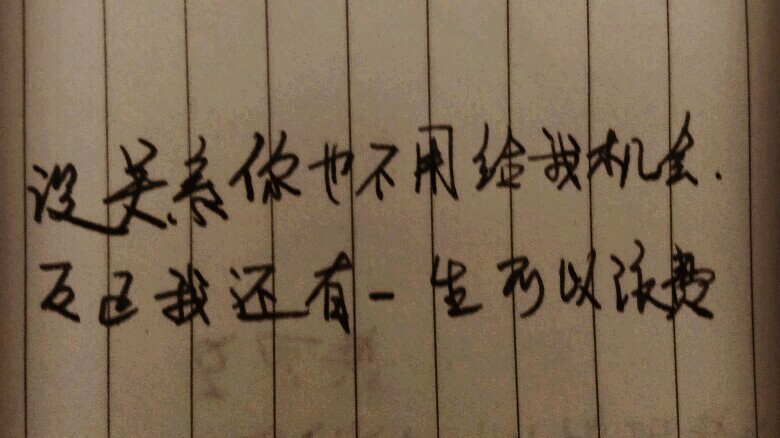 没关系你也不用给我机会.
反正我还有一生可以浪费